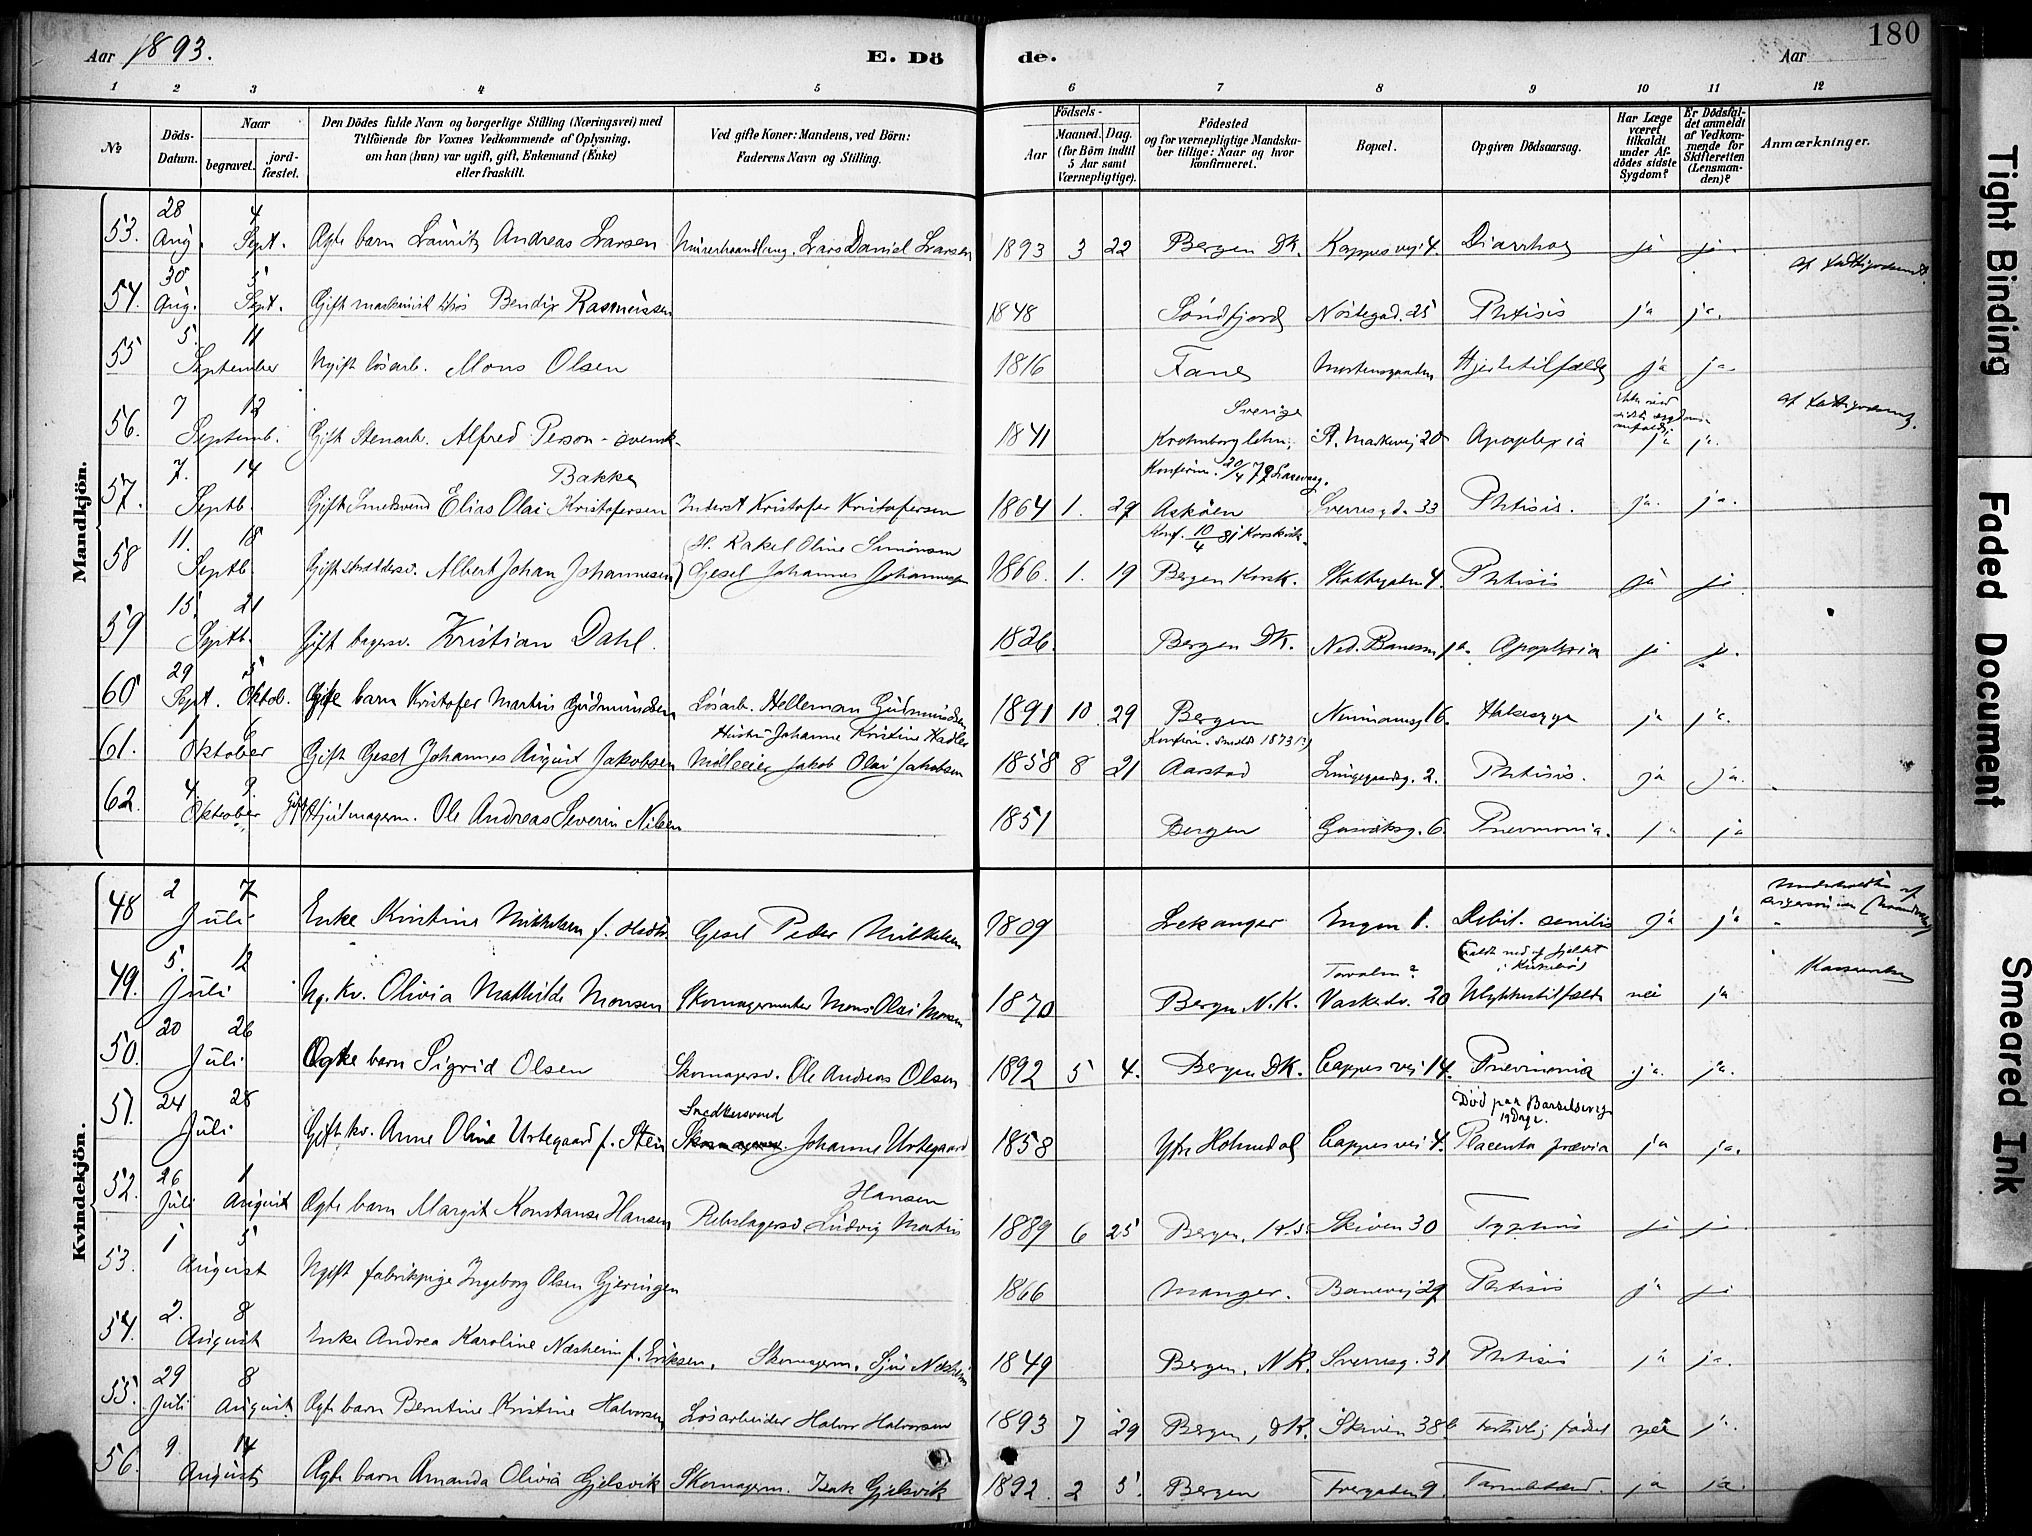 Aar 1893.
E. Dö
de.
Aar
180
1 2 3 4 5 6 7 8 9 10 11 12
№
Döds-Datum.
Naar
begravet.
jord-fæstet.
Den Dödes fulde Navn og borgerlige Stilling (Næringsvei) med
Tilföiende for Voxnes Vedkommende af Oplysning,
om han (hun) var ugift, gift, Enkemand (Enke)
eller fraskilt.
Ved gifte Koner: Mandens, ved Börn:
Faderens Navn og Stilling.
Födsels-
Aar
Maaned. Dag.
(for Börn indtil
5 Aar samt
Værnepligtige).
Födested
og for værnepligtige Mandska-
ber tillige: Naar og hvor
konfirmeret.
Bopæl.
Opgiven Dödsaarsag.
Har Læge
været
tilkaldt
under Af-
dödes sidste
Sygdom?
Er Dödsfal-
det anmeldt
af Vedkom-
mende for
Skifteretten
(Lensman-
den)?
Anmærkninger.
Mandkjön.
53. 28 Aug. 4 Sept. Ægte barn Lauritz Andreas Larsen Lars Daniel Larsen 1893 3 22 Bergen DK. Kappesvej 4. Diarrhoe ja ja
af Fattigvæsenet.
54. 30 Aug. 5 Sept. Gift Bendix Rasmussen 1848 Söndfjord Nöstegad. 25 Phtisis ja ja.
55 5. 11 September Ugift lösarb. Mons Olsen 1816 Fane Mortensgaarden Hjertetilfælde ja ja.
Sverige
af Fattigvæsenet.
56. 7 12 Septemb. Gift Stenarb. Alfred Person - svensk 1841 Kronborg lehn. St. Markevej 20 Apoplexia ja ja.
Bakke
57. 7. 14 Septb. Gift Smedsvend Elias Olai Kristofersen Inderst Kristofer Kristofersen 1864 1. 29 Askøen Sverresgd. 33 Phtisis. ja. ja.
H. Rakel Oline Simonsen
Konf. 10/4 81 i Korskirk.
58 11. 18 Septb. Gift Skræddersv. Albert Johan Johannesen Gesel Johannes Johannesen 1866. 1. 19 Bergen Korsk. Skottegaten 4. Phtisis ja ja
59 15. 21 Septb. Gift bagersv. Kristian Dahl. 1826. Bergen DK. Ned. Banesm 1a. Apoplexia ja ja.
60 29 Sept. 5 Oktob. Ægte barn Kristofer Martin Gudmundsen Lösarb. Helleman Gudmundsen 1891 10 29 Bergen Neumansg 16. Halssyge ja ja.
Hustru Johanne Kristine
61. 1 6 Oktober Gift Gesel Johannes August Jakobsen Mölleeier Jakob Olai Jakobsen 1858 8 21 Aarstad Lungegaardsg. 2. Phtisis. ja ja.
62. 4. 9. Oktober Gift Hjulmagerm. Ole Andreas Severin Nilsen 1851 Bergen Gasværksg. 6. Pnevmonia. ja ja
Kvindekjön.
48 2 7 Juli Enke Kristine Mikkelsen f. Gesel Peder Mikkelsen 1809 Lekanger Engen 1. Debil. senilis ja ja
49. 5. 12 Juli Ug. kv. Olivia Mathilde Monsen Skomagermester Mons Olai Monsen 1870 Bergen N.K. Vaskedv. 20 Ulykkestilfælde nei ja
50. 20 26 Juli Ægte barn Sigrid Olsen Skomagersv. Ole Andreas Olsen 1892 5 4. Bergen DK. Cappes vej 14. Pnevmonia ja. ja.
Snedkersvend
Död paa Barselseng
51. 24 28 Juli Gift kv. Anne Oline Urtegaard f. Stein Johannes Urtegaard 1858 Ytre Holmedal Cappesvei 4. Placenta prævia ja ja.
Hansen
52. 26 Juli 1 August Ægte barn Margit Konstanse Hansen Rebslagersv. Ludvig Martin 1889 6 25 Bergen, Skiven 30 Typhus ja ja.
53. 1 5 August Ugift fabrikpige Ingeborg Olsen Gjeringen 1866 Manger. Banevej 29 Phtisis ja ja
54. 2. 8 August Enke Andrea Karoline Næsheim f. Eriksen. Skomagerm. Sjur Næsheim 1849 Bergen, NK. Sverresg. 31 Phtisis ja ja.
55. 29 Juli 8 August. Ægte barn Berntine Kristine Halvorsen Lösarbeider Halvor Halvorsen 1893 7 29 Bergen, DK. Skiven 38b födsel nei ja
56. 9. 14 August Ægte barn Amanda Olivia Gjelsvik Skomagerm. Isak Gjelsvik 1892. 2 5. Bergen 9. ja ja.
Tight Binding
Faded Document
Smeared Ink